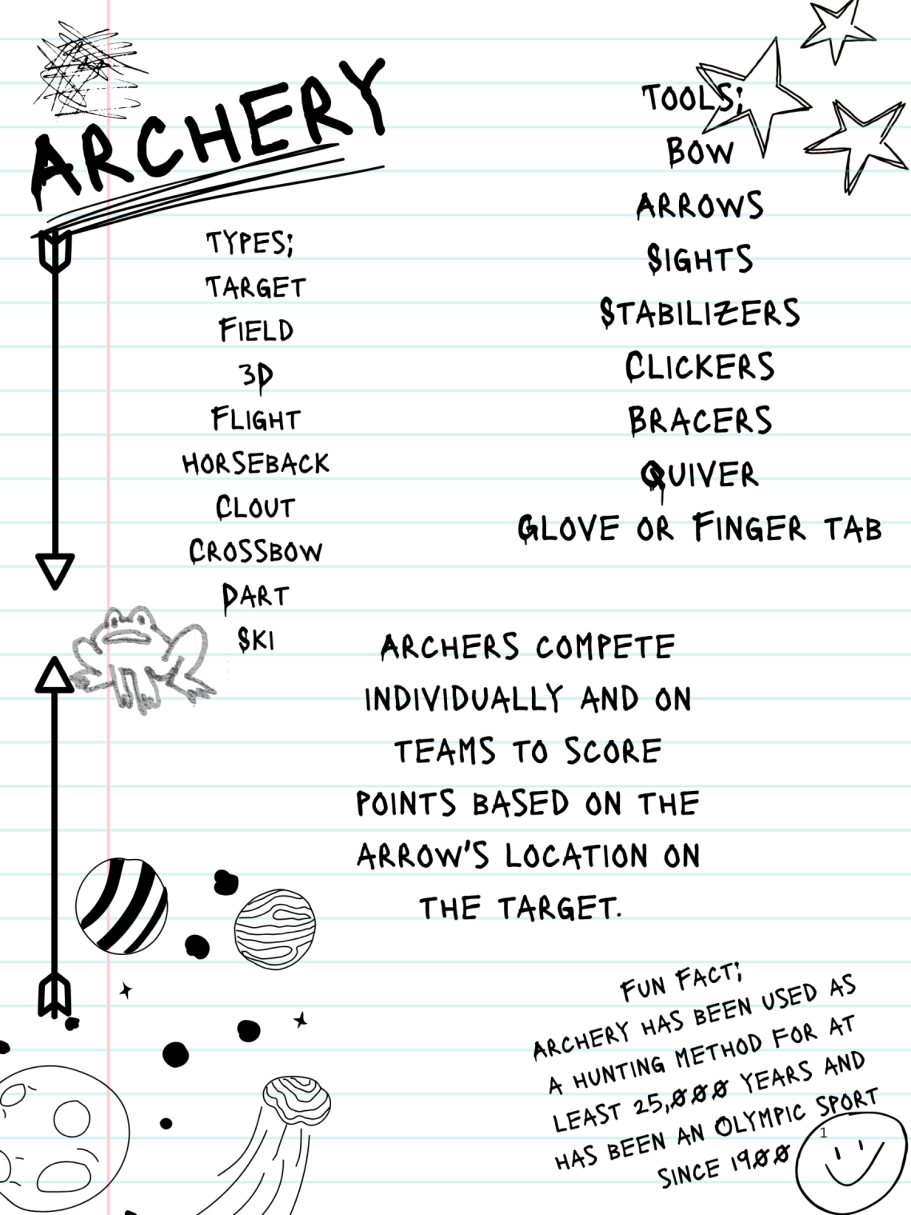 ARCHERY
TYPES;
TARGET
FIELD
3D
FLIGHT
HORSEBACK
CLOUT
CROSSBOW
DART
SKI
TOOLS;
BOW
ARROWS
SIGHTS
STABILIZERS
CLICKERS
BRACERS
QUIVER
GLOVE OR FINGER TAB
ARCHERS COMPETE
INDIVIDUALLY AND ON
TEAMS TO SCORE
POINTS BASED ON THE
ARROW'S LOCATION ON
THE TARGET.
FUN FACT;
ARCHERY HAS BEEN USED AS
A HUNTING METHOD FOR AT
LEAST 25,000 YEARS AND
HAS BEEN AN OLYMPIC SPORT
SINCE 1900
1